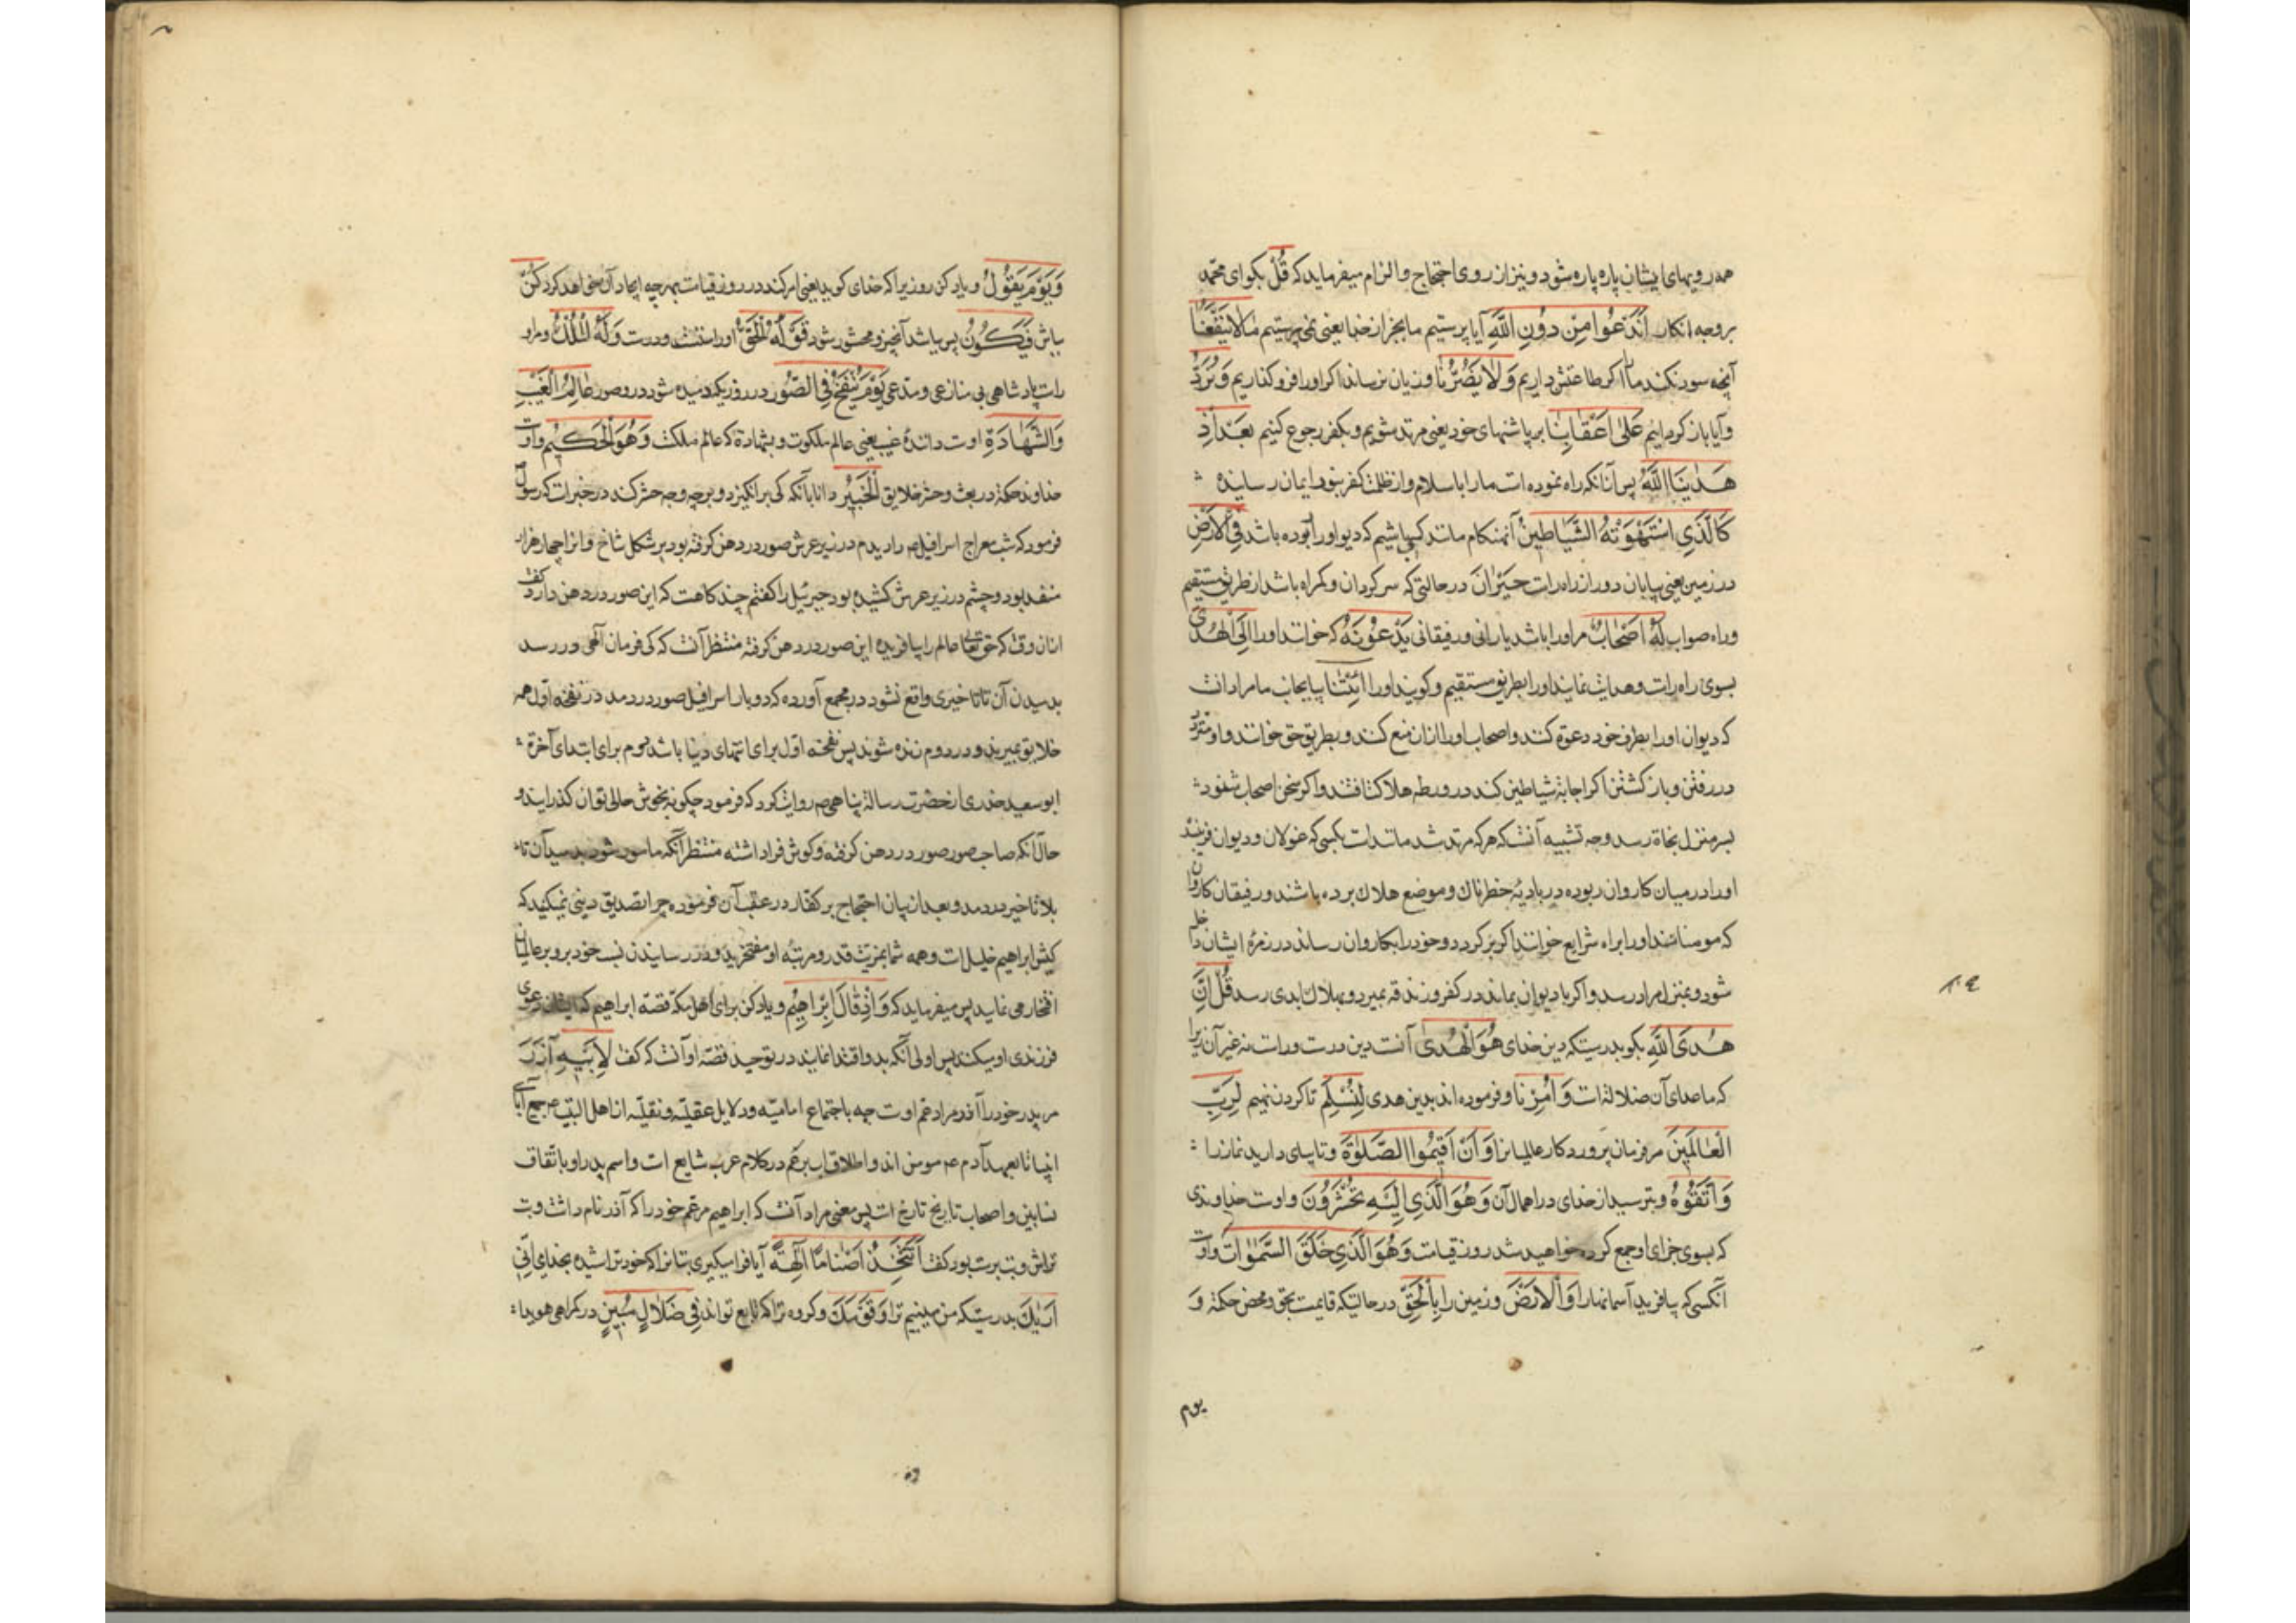 همه رویهای ایشان پاره پاره شود و نیز از روی احتجاج و الزام میفرماید که قُلْ بکو ای محمد
بر وجه انکار اَنَدْعُوا مِنْ دُونِ اللّٰهِ آیا پرستیم ما بجز از خدا یعنی نمی پرستیم مٰا لاٰ یَنْفَعُنٰا
آنچه سود نکند ما را اکر طاعتش داریم وَ لاٰ یَضُرُّنٰا و زیان نرساند اکر او را فرو کذاریم وَ نُرَدُّ
و آیا باز کردانیم عَلیٰ اَعْقٰابِنٰا بر پاشنهای خود یعنی مرتد شویم و بکفر رجوع کنیم بَعْدَ اِذْ
هَدٰینَا اللّٰهُ پس از آنکه راه نموده است ما را باسلام و از ظلمت کفر بنور ایمان رسانیده
کَالَّذِی اسْتَهْوَتْهُ الشَّیٰاطِینُ آنهنکام مانند کسی باشیم که دیو او را ربوده باشد فِی الْاَرْضِ
در زمین یعنی بیابان دور از راه راست حَیْرٰانَ در حالتی که سرکردان و کمراه باشد از طریق مستقیم
و راه صواب لَهُ اَصْحٰابٌ مر او را باشد یارانی و رفیقانی یَدْعُونَهُ که خوانند او را اِلَی الْهُدَی
بسوی راه راست و هدایت نمایند او را بطریق مستقیم و کویند او را ائْتِنٰا بیا بجانب ما مراد آنست
که دیوان او را بطرف خود دعوة کنند و اصحاب او را از آن منع کنند و بطریق حق خوانند و او متردد
در رفتن و باز کشتن اکر اجابة شیاطین کند در ورطه هلاکت افتد و اکر سخن اصحاب شنود
بسر منزل نجاة رسد وجه تشبیه آنست که هر که مرتد شد مانند است بکسی که غولان و دیوان فریبند
او را در میان کاروان ربوده در بادیهٔ خطرناک و موضع هلاک برده باشند و رفیقان کاروان
که مومنانند او را براه شرایع خوانند اکر بر کردد و خود را بکاروان رساند در زمرهٔ ایشان داخل
شود و بمنزل مراد رسد و اکر با دیوان بماند در کفر و زندقه بمیرد و بهلاک ابدی رسد قُلْ اِنَّ
هُدَی اللّٰهِ بکو بدرستیکه دین خدای هُوَ الْهُدیٰ آنست دین درست و راست نه غیر آن زیرا
که ماصدای آن ضلالة است وَ اُمِرْنٰا و فرموده اند بدین هدی لِنُسْلِمَ تا کردن نهیم لِرَبِّ
الْعٰالَمِینَ مر فرمان پروردکار عالمیانرا وَ اَنْ اَقِیمُوا الصَّلوٰةَ و تا بپای دارید نماز را
وَ اتَّقُوهُ و بترسید از خدای در اهمال آن وَ هُوَ الَّذِی اِلَیْهِ تُحْشَرُونَ و اوست خداوندی
که بسوی جزای او جمع کرده خواهید شد روز قیامت وَ هُوَ الَّذِی خَلَقَ السَّمٰوٰاتِ و اوست
آنکسی که بیافرید آسمانها را وَ الْاَرْضَ و زمین را بِالْحَقِّ در حالتیکه قایمست بحق و محض حکمة وَ
یوم
وَ یَوْمَ یَقُولُ و یاد کن روزیرا که خدای کوید یعنی امر کند در روز قیامت بهر چه ایجاد آن خواهد کرد کُنْ
بباش فَیَکُونُ پس بباشد آنچیز و محشور شود قَوْلُهُ الْحَقُّ او راستست و درست وَ لَهُ الْمُلْکُ و مر او
راست پادشاهی بی منازعی و مدعی یَوْمَ یُنْفَخُ فِی الصُّورِ در روزیکه دمیده شود در و صور عٰالِمُ الْغَیْبِ
وَ الشَّهٰادَةِ اوست دانندهٔ غیب یعنی عالم ملکوت و بشهادة که عالم ملکست وَ هُوَ الْحَکِیمُ و اوست
خداوند حکمة در بعث و حشر خلایق اَلْخَبِیرُ دانا بآنکه کی برانکیزد و بر چه وجه حشر کند در خبر است که رسول
فرمود که شب معراج اسرافیل را دیدم در زیر عرش صور در دهن کرفته بود بر شکل شاخ و انرا چهار هزار
منفذ بود و چشم در زیر عرش کشیده بود جبرئیل را کفتم چند کاهست که این صور در دهن دارد کفت
از آن وقت که حق تعالی عالم را بیافریده این صور در دهن کرفته منتظر آنست که کی فرمان الهی در رسد
بدمیدن آن تا تاخیری واقع نشود در مجمع آورده که دو بار اسرافیل صور در دمد در نفخه اول همه
خلایق بمیرند و در دوم زنده شوند پس نفخه اول برای انتهای دنیا باشد دوم برای ابتدای آخرة
ابو سعید خدری از حضرت رسالة پناهی روایت کرد که فرمود چکونه بخوش حالی توان کذرانید و
حال آنکه صاحب صور صور در دهن کرفته و کوش فرا داشته منتظر آنکه مامور شود بدمیدن آن تا
بلا تاخیر در دمد و بعد از بیان احتجاج بر کفار در عقب آن فرموده چرا تصدیق دینی نمیکنید که
کیش ابراهیم خلیل است و همه شما بمزیت قدر و مرتبه او مفتخرید و در رسانیدن نسب خود برو بر عالمیان
افتخار می نماید پس میفرماید که وَ اِذْ قٰالَ اِبْرٰاهِیمُ و یاد کن برای اهل مکه قصه ابراهیم که ایشان دعوی
فرزندی او میکنند پس اولی آنکه بدو اقتدا نمایند در توحید قصه او آنست که کفت لِاَبِیهِ آزَرَ
مر پدر خود را آذر مراد عم اوست چه باجتماع امامیه و دلایل عقلیه و نقلیه از اهل البیت جمیع آبای
انبیا تا بعهد آدم مومن اند و اطلاق اب بر عم در کلام عرب شایع است و اسم پدر او باتفاق
نسابین و اصحاب تاریخ تارخ است پس معنی مراد آنست که ابراهیم مر عم خود را که آذر نام داشت و بت
تراش و بت پرست بود کفت اَتَتَّخِذُ اَصْنٰامًا آلِهَةً آیا فرا میکیری بتانرا که خود تراشیده بخدای اِنِّی
اَرٰیکَ بدرستیکه من میبینم ترا وَ قَوْمَکَ و کروه ترا که تابع تواند فِی ضَلاٰلٍ مُبِینٍ در کمراهی هویدا